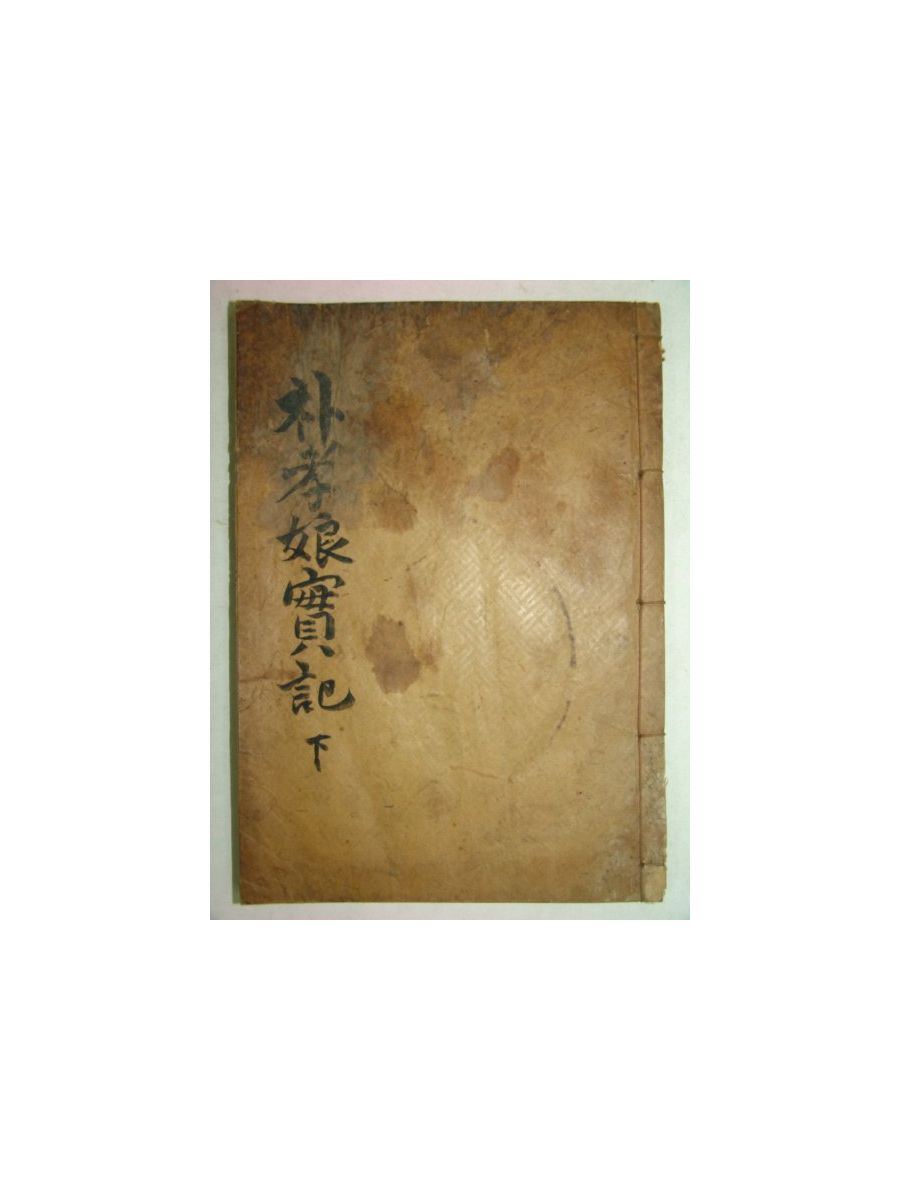 朴孝娘實記 下